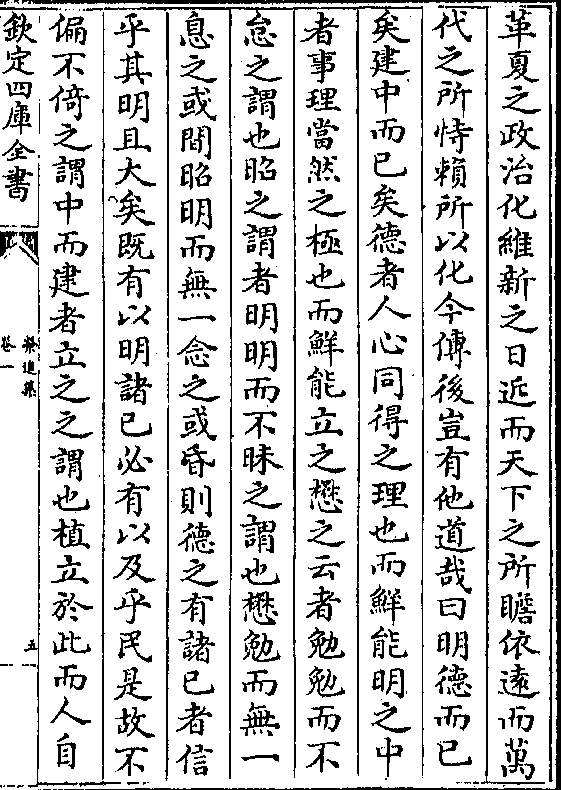 革夏之政治化維新之日近而天下之所瞻依逺而萬
代之所恃賴所以化今傳後豈有他道哉曰明德而已
矣建中而已矣德者人心同得之理也而鮮能明之中
者事理當然之極也而鮮能立之懋之云者勉勉而不
怠之謂也昭之謂者明明而不昧之謂也懋勉而無一
息之或間昭明而無一念之或昏則德之有諸已者信
乎其明且大矣既有以明諸已必有以及乎民是故不
偏不倚之謂中而建者立之之謂也植立於此而人自
欽定四庫全書
卷一
五